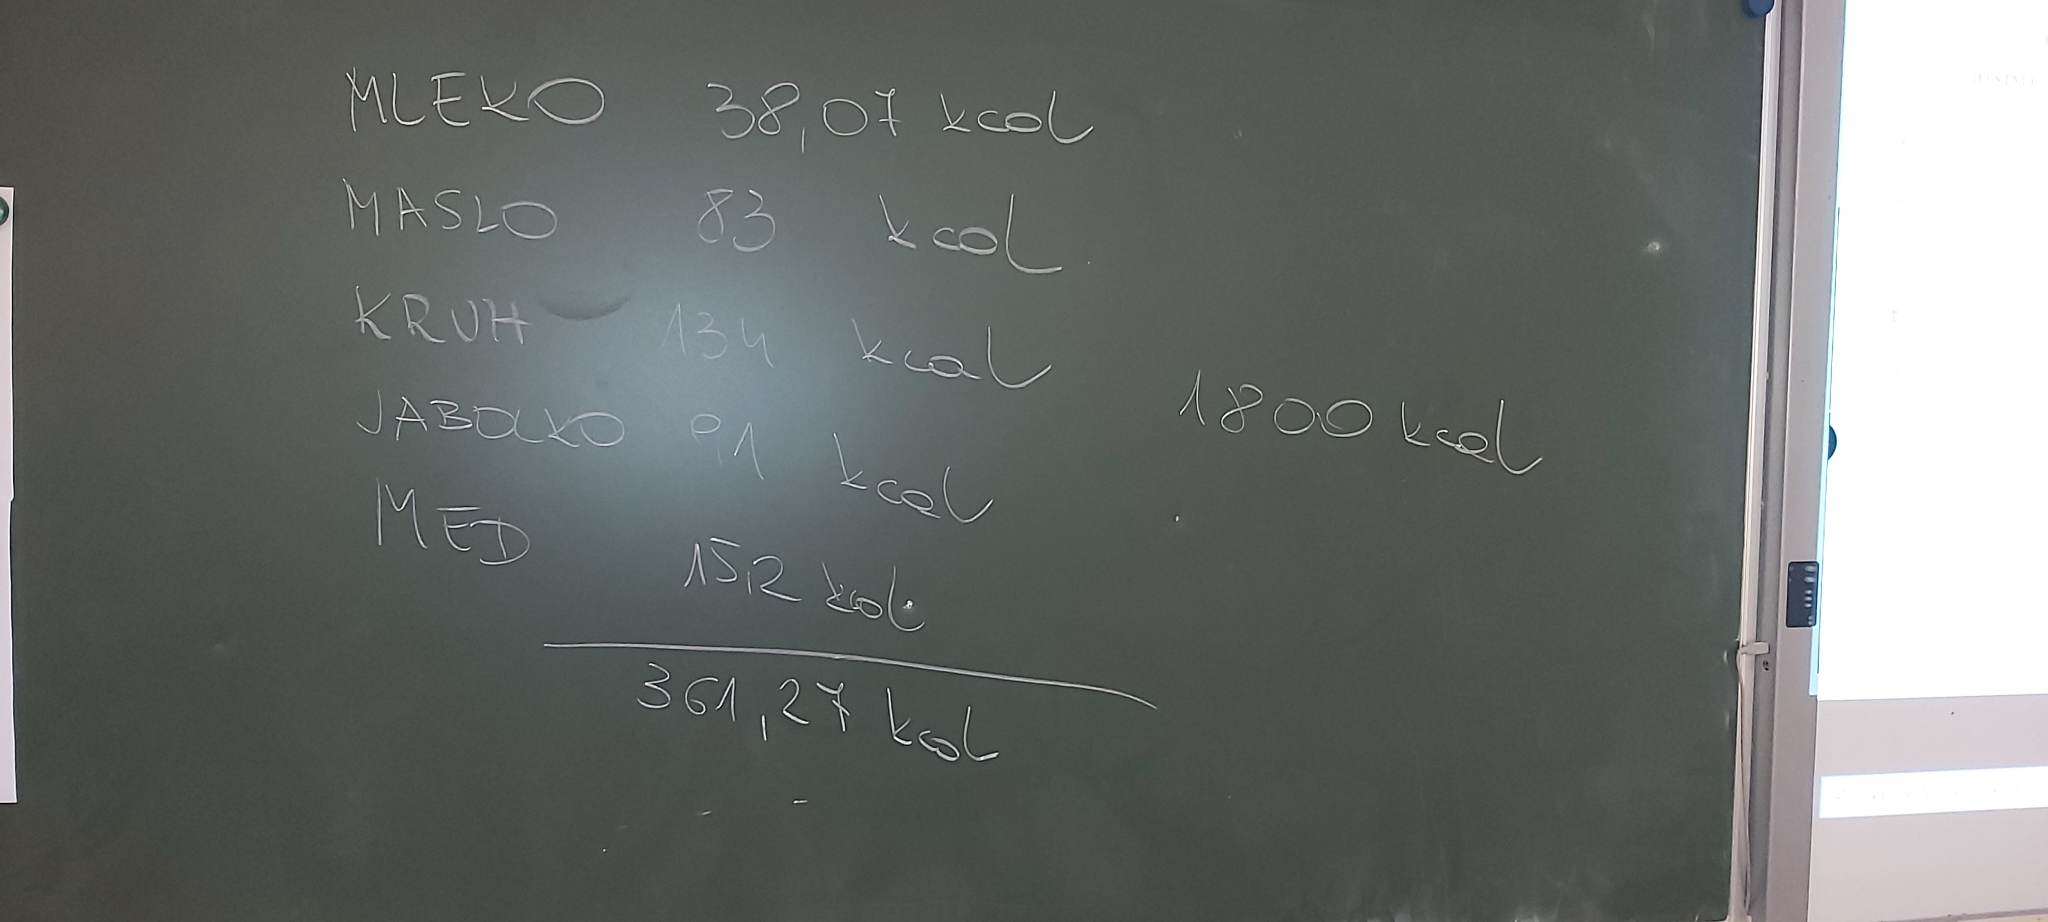 MLEKO 38,07 kcal
MASLO 83 kcal
KRUH 134 kcal
JABOLKO 91 kcal
MED 15,2 kcal
361,27 kcal
1800 kcal